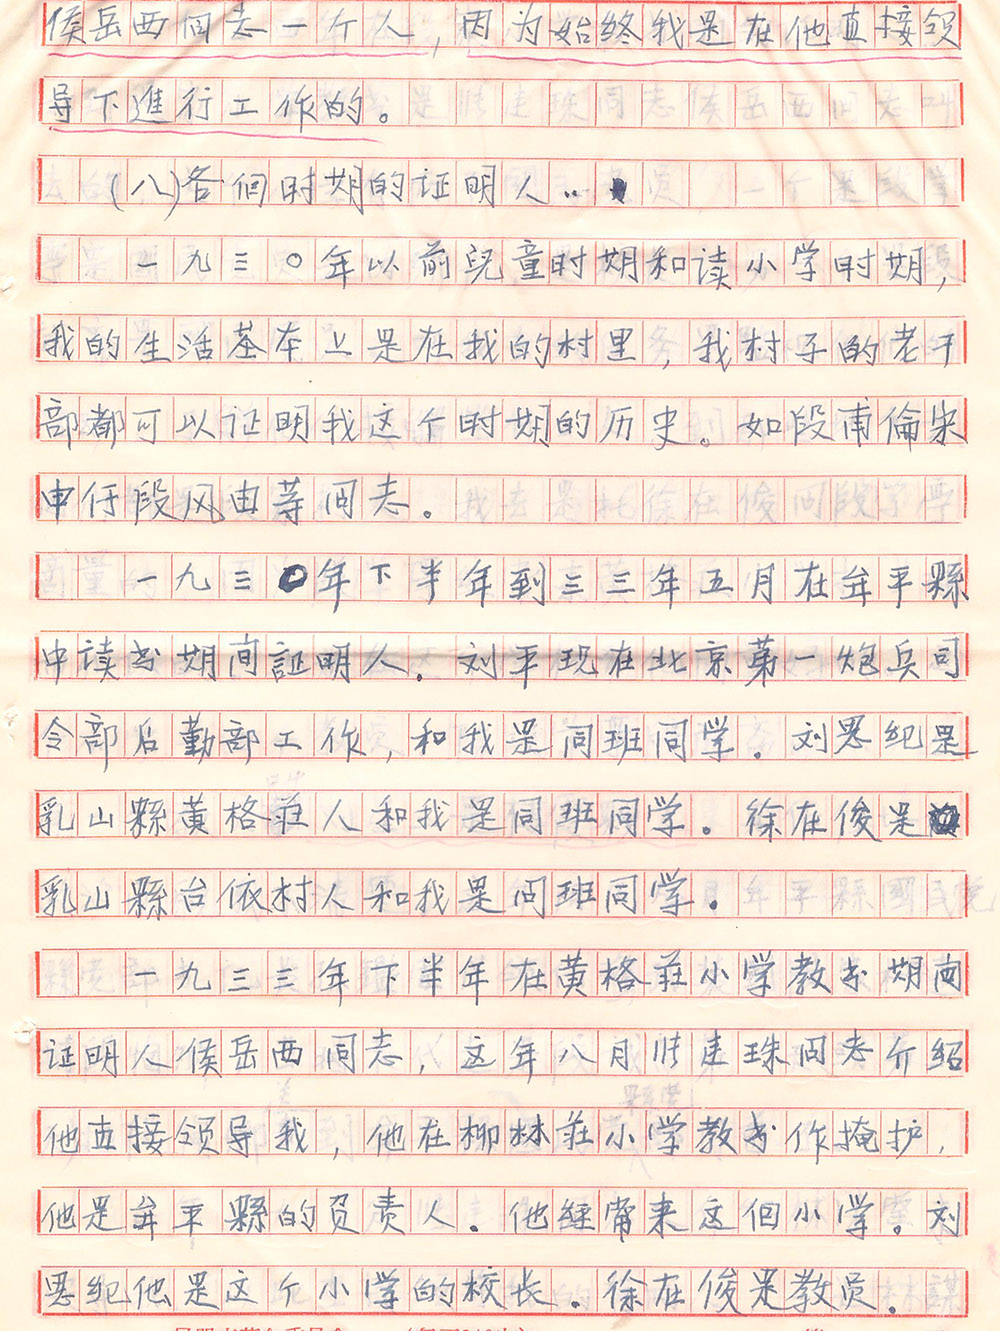 侯岳西同志一个人，因为始终我是在他直接领
导下進行工作的。
(八)各個时期的证明人..
一九三〇年以前兒童时期和读小学时期，
我的生活基本上是在我的村里，我村子的老干
部都可以证明我这个时期的历史。如段甫倫宋
申仔段风由等同志。
一九三〇年下半年到三三年五月在牟平縣
中读书期间証明人．刘平现在北京第一炮兵司
令部后勤部工作，和我是同班同学．刘思纪是
乳山縣黄格莊人和我是同班同学。徐在俊是
乳山縣台依村人和我是同班同学．
一九三三年下半年在黄格莊小学教书期间
证明人侯岳西同志，这年八月 珠同志介绍
他直接领导我，他在柳林莊小学教书作掩护．
他是牟平縣的负责人．他经常来这個小学。刘
思纪他是这个小学的校长．徐在俊是教员．